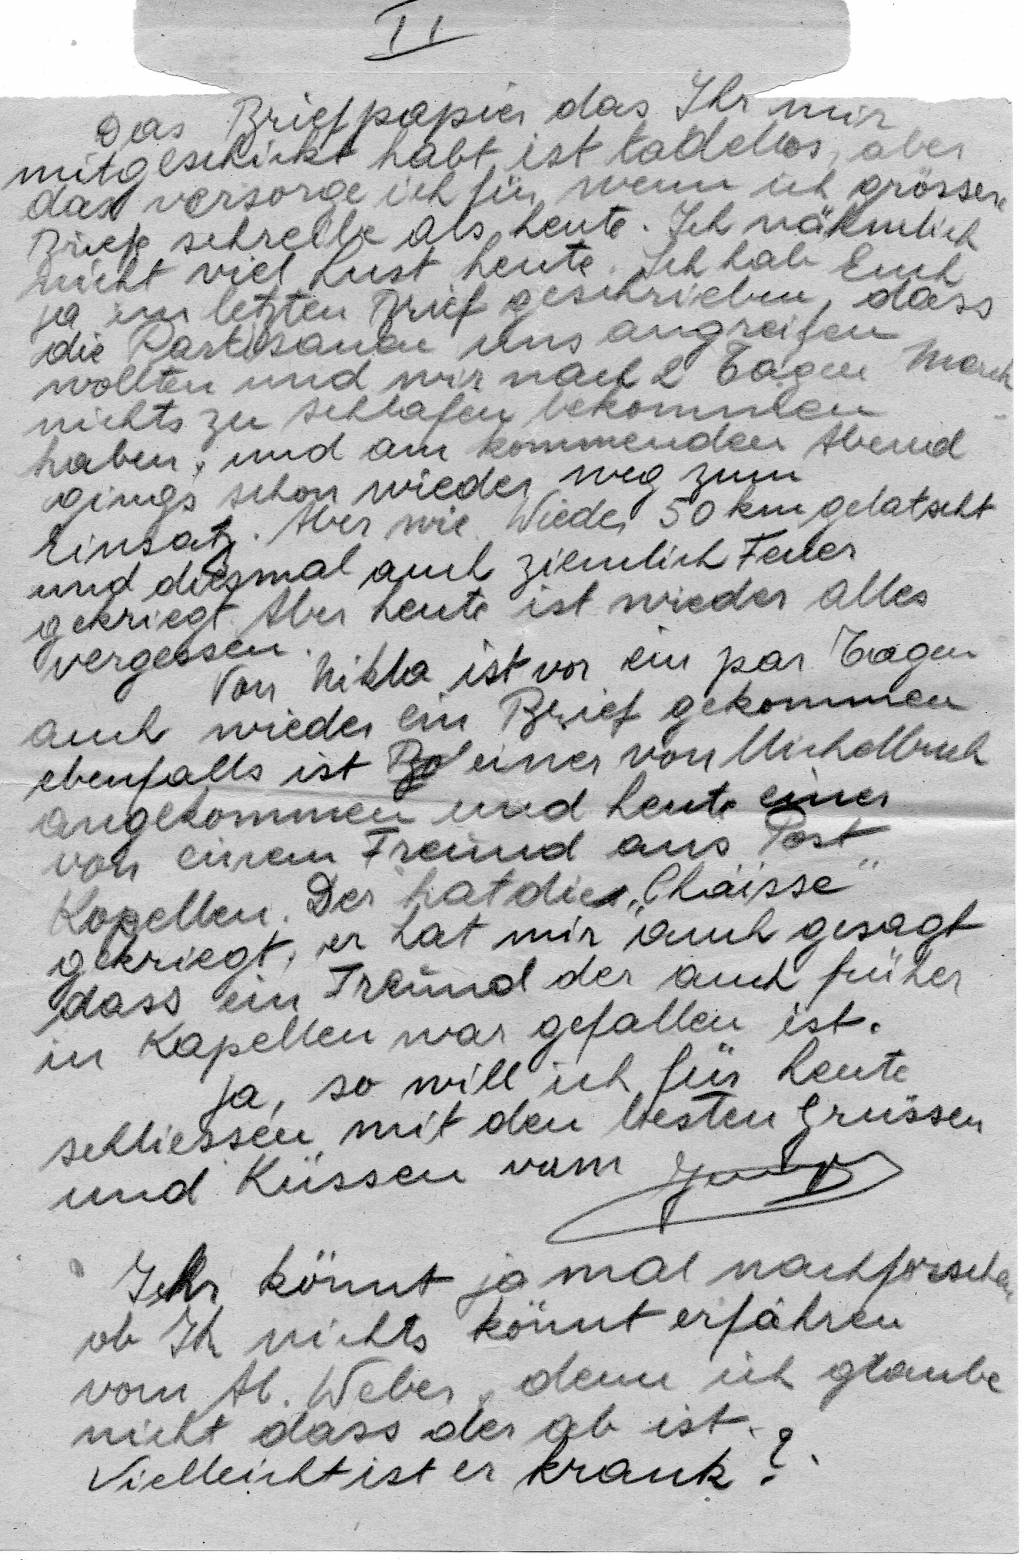 II
Das Briefpapier das Ihr mir
mitgeschickt habt, ist tadellos, aber
das versorge ich für, wenn ich grössere
Briefe schreibe als heute. Ich nähmlich
nicht viel Lust heute. Ich hab Euch
ja im letzten Brief geschrieben, dass
die Partisanen uns angreifen
wollten und wir nach 2 Tagen Marsch
nichts zu schlafen bekommen
haben, und am kommenden Abend
gings schon wieder weg zum
Einsatz. Aber wie. Wieder 50 km gelatscht
und diesmal auch ziemlich Feuer
gekriegt. Aber heute ist wieder alles
vergessen.
Von Nikla ist vor ein par Tagen
auch wieder ein Brief gekommen
ebenfalls ist einer von Michelbuch
angekommen und heute einer
von einem Freund aus Post
Kapellen. Der hat die „Chaisse"
gekriegt, er hat mir auch gesagt
dass ein Freund der auch früher
in Kapellen war gefallen ist.
Ja, so will ich für heute
schliessen mit den besten Grüssen
und Küssen vom
Ihr könnt ja mal nachforschen
ob Ihr nichts könnt erfahren
vom Al. Weber, denn ich glaube
nicht dass der ab ist.
Vielleicht ist er krank?